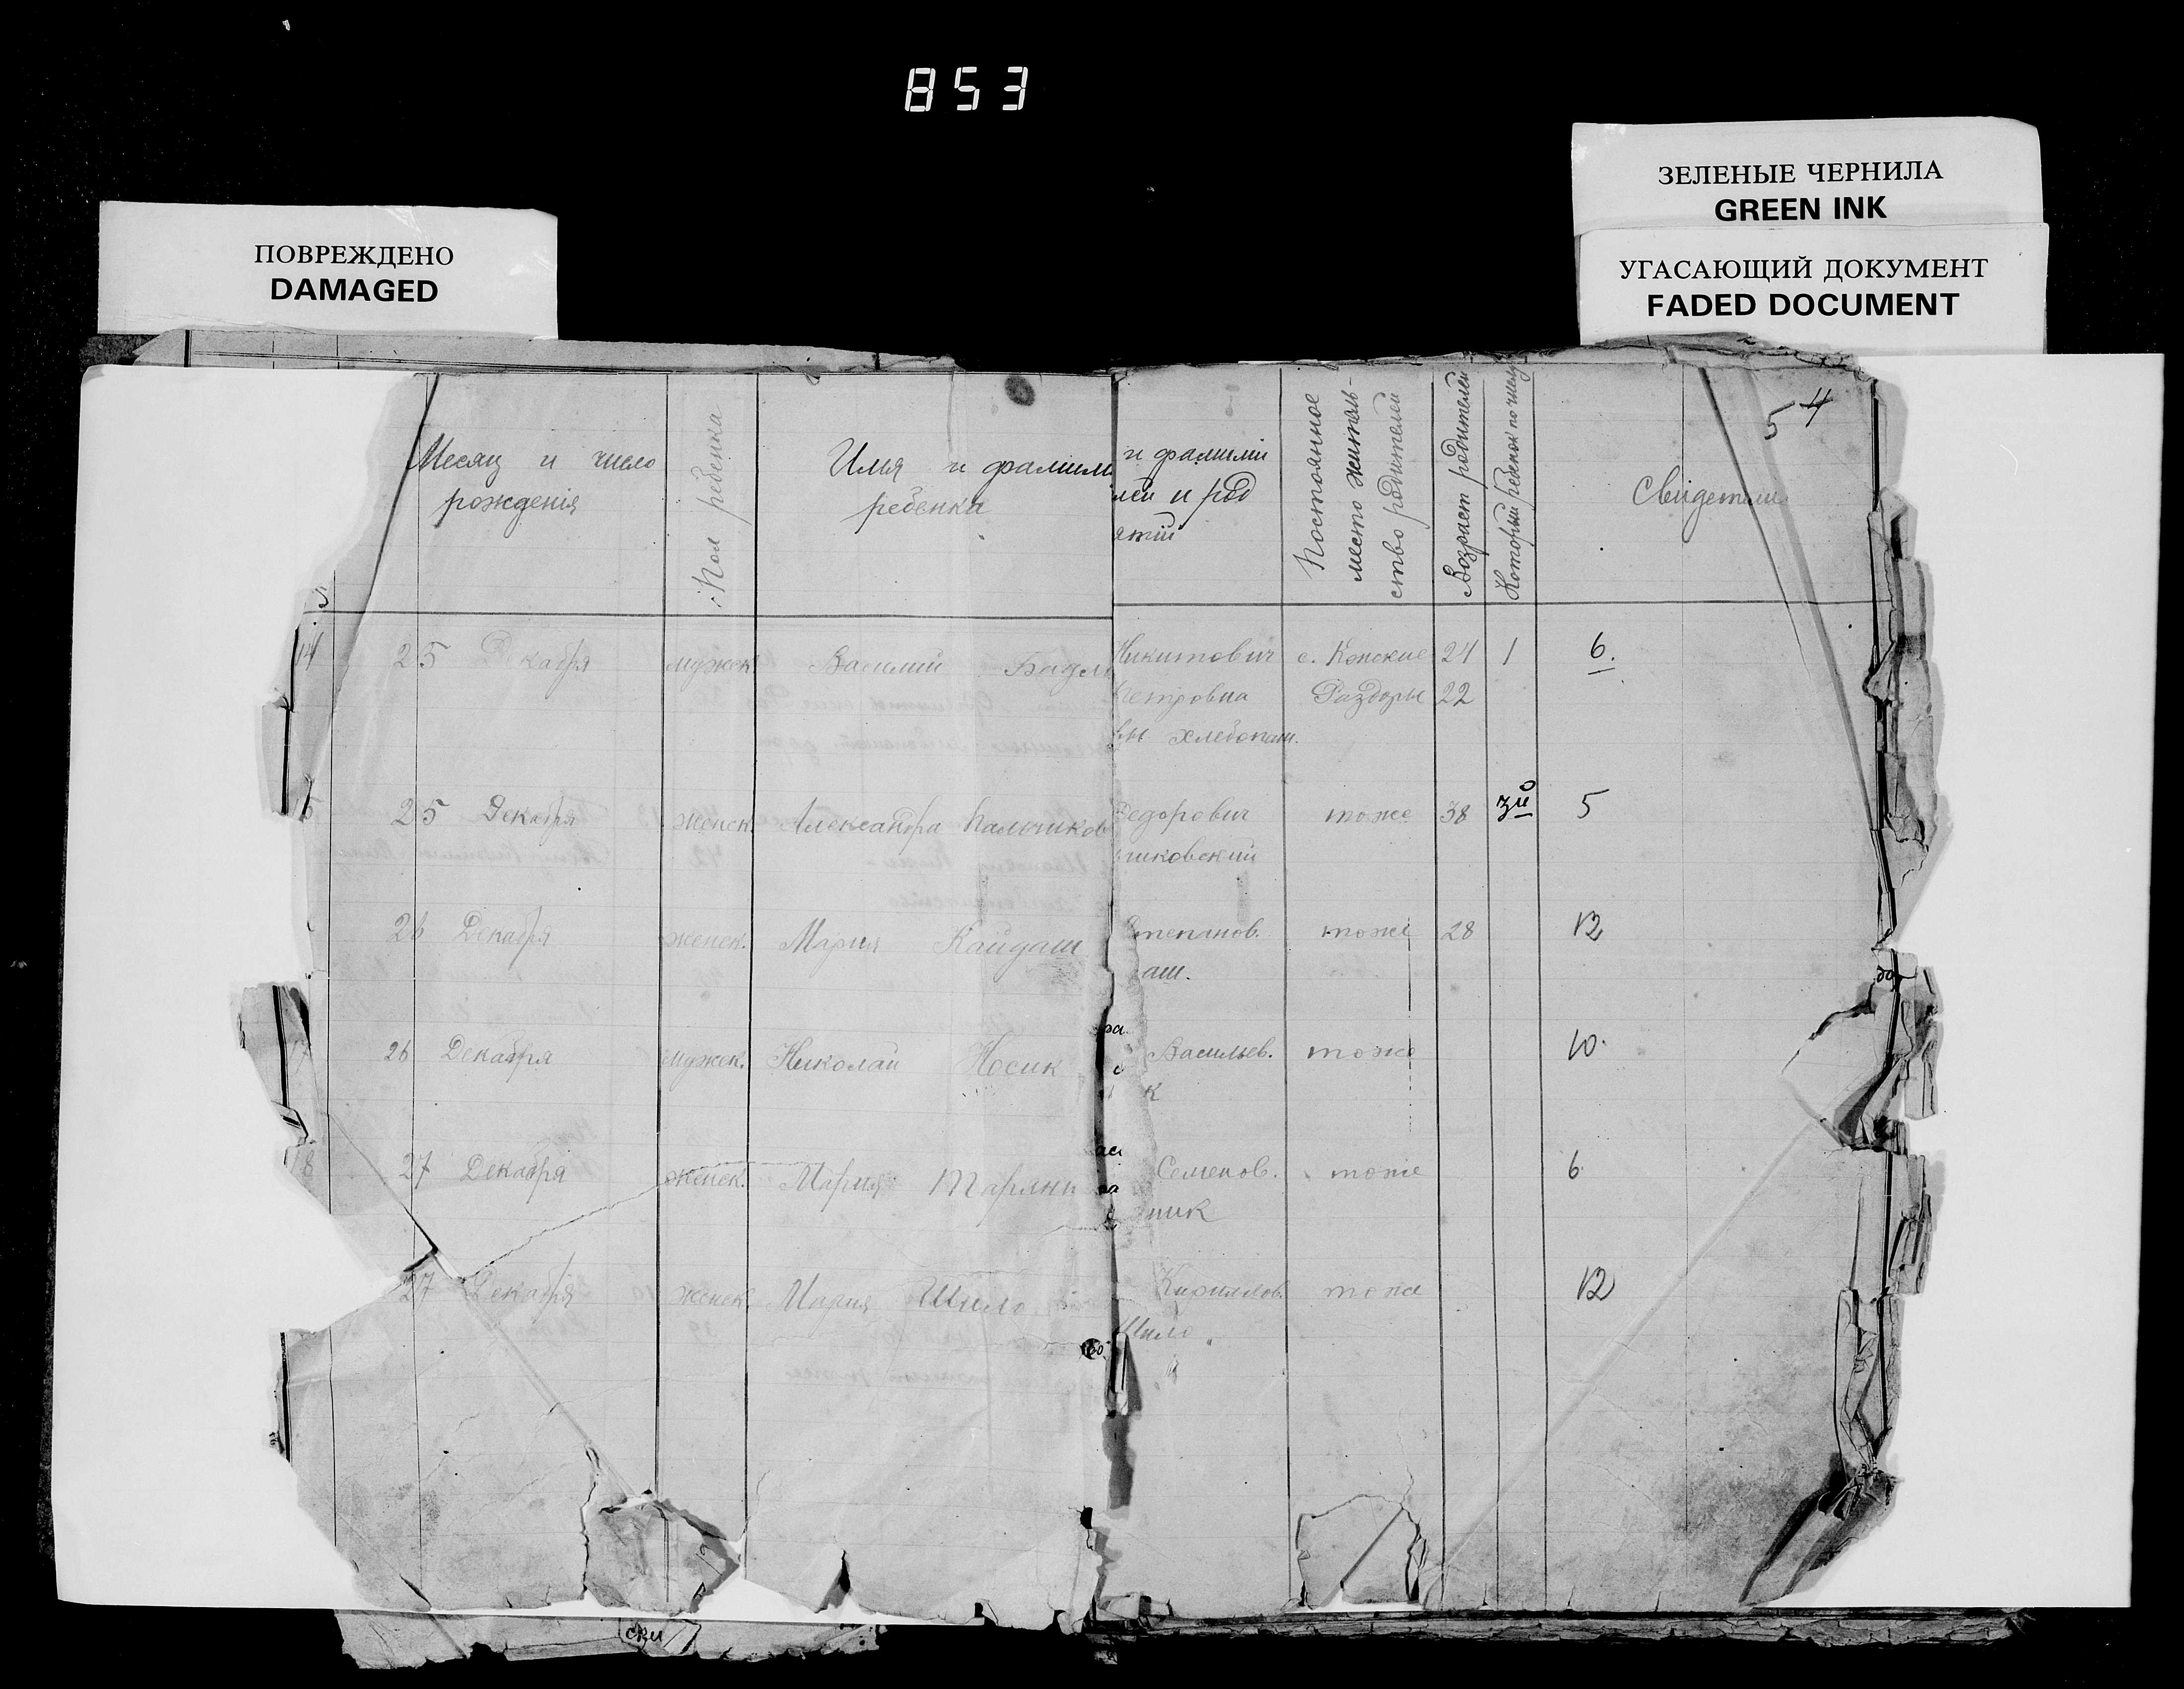 853
ПОВРЕЖДЕНО
DAMAGED
ЗЕЛЕНЫЕ ЧЕРНИЛА
GREEN INK
УГАСАЮЩИЙ ДОКУМЕНТ
FADED DOCUMENT
54
Месяц и число
рожденія
Пол ребенка
Имя и фамили
ребенка
и фамилии
лей и род
ятий
Постоянное
место житель-
ство родителей
Возраст родителей
Который ребенок по числу
Свидетели
14 25 Декабря мужск. Василий Никитович с. Конские 24 1 6.
Петровна Раздоры 22
хлебопаш.
5 25 Декабря женск. Александра Пальчиков Федорович тоже 38 3й 5
чиковский
26 Декабря женск. Мария Кайдаш Степанов. тоже 28 12
аш.
17 26 Декабря мужск. Николай Носик Васильев. тоже 10.
к
18 27 Декабря женск. Мария Семенов. тоже 6
ник
27 Декабря женск. Мария Шило Кириллов. тоже 12
Шило
ски